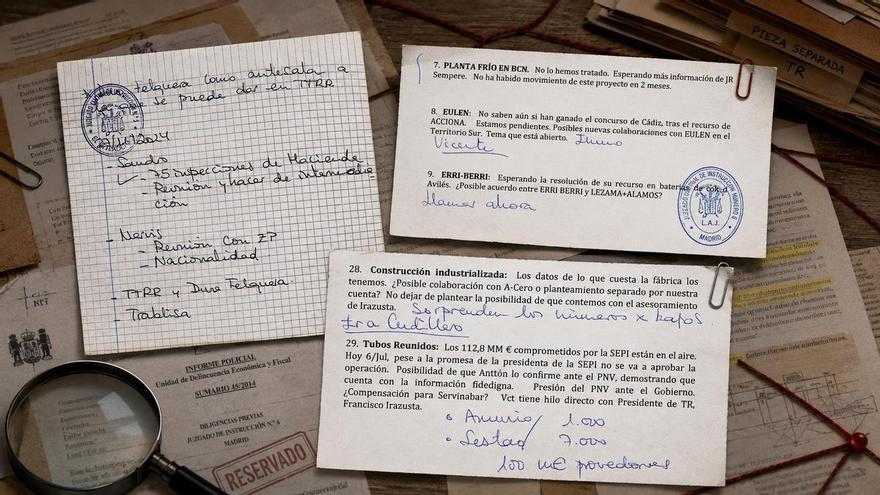 Felguera como antesala a
se puede dar en TTRR
/2024
- Sandro
35 inspecciones de Hacienda
- Reunión y hacer de intermedia
ción
- Neris
- Reunión con ZP
- Nacionalidad
- TTRR y Duro Felguera
- Trablisa
7. PLANTA FRÍO EN BCN. No lo hemos tratado. Esperando más información de JR
Sempere. No ha habido movimiento de este proyecto en 2 meses.
8. EULEN: No saben aún si han ganado el concurso de Cádiz, tras el recurso de
ACCIONA. Estamos pendientes. Posibles nuevas colaboraciones con EULEN en el
Territorio Sur. Tema que está abierto.
Vicente
9. ERRI-BERRI: Esperando la resolución de su recurso en baterías de cok d
Avilés. ¿Posible acuerdo entre ERRI BERRI y LEZAMA+ALAMOS?
Llamar ahora
JUZGADO CENTRAL DE INSTRUCCIÓN NÚMERO 6
L.A.J.
MADRID
28. Construcción industrializada: Los datos de lo que cuesta la fábrica los
tenemos. ¿Posible colaboración con A-Cero o planteamiento separado por nuestra
cuenta? No dejar de plantear la posibilidad de que contemos con el asesoramiento
de Irazusta. Sorprenden los números x bajos
29. Tubos Reunidos: Los 112,8 MM € comprometidos por la SEPI están en el aire.
Hoy 6/Jul, pese a la promesa de la presidenta de la SEPI no se va a aprobar la
operación. Posibilidad de que Anttón lo confirme ante el PNV, demostrando que
cuenta con la información fidedigna. Presión del PNV ante el Gobierno.
¿Compensación para Servinabar? Vct tiene hilo directo con Presidente de TR,
Francisco Irazusta.
• Amurrio 1.000
• Sestao 7.000
100 m€ proveedores
PIEZA SEPARADA
TR
INFORME POLICIAL
Unidad de Delincuencia Económica y Fiscal
SUMARIO 45/2014
DILIGENCIAS PREVIAS
JUZGADO DE INSTRUCCIÓN Nº 6
MADRID
RESERVADO